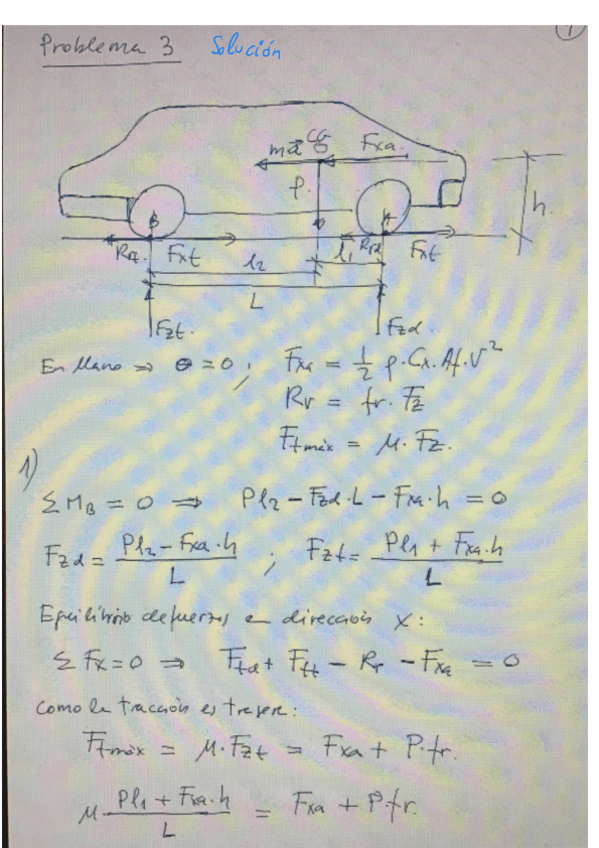 1
Problema 3 Solución
mā CG Fxa.
P.
h
B A
Rrt. Fxt l2 l1 Rrd Fxt
L
Fzt. Fzd.
En llano => θ = 0 ; Fxa = 1/2 ρ·Cx·Af·V²
Rr = fr·Fz
Ftmáx = μ·Fz.
1)
ΣMB = 0 => Pl2 - Fzd·L - Fxa·h = 0
Fzd = (Pl2 - Fxa·h)/L ; Fzt = (Pl1 + Fxa·h)/L
Equilibrio de fuerzas en dirección X:
ΣFx = 0 => Ftd + Ftt - Rr - Fxa = 0
Como la tracción es trasera:
Ftmáx = μ·Fzt = Fxa + P·fr.
μ·(Pl1 + Fxa·h)/L = Fxa + P·fr.